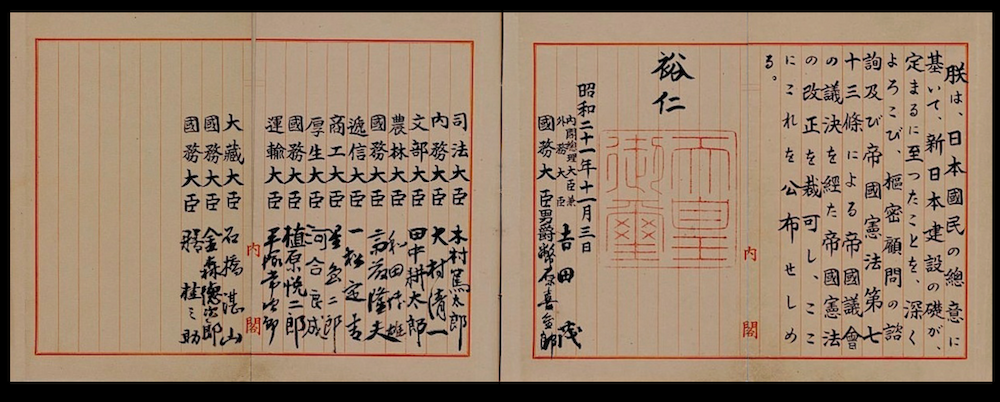 朕は、日本國民の總意に
基いて、新日本建設の礎が、
定まるに至つたことを、深く
よろこび、樞密顧問の諮
詢及び帝國憲法第七
十三條による帝國議會
の議決を經た帝國憲法
の改正を裁可し、ここ
にこれを公布せしめ
る。
內閣
裕仁
天皇
御璽
昭和二十一年十一月三日
內閣總理大臣兼
外務大臣
吉田茂
國務大臣 男爵幣原喜重郎
司法大臣 木村篤太郎
內務大臣 大村清一
文部大臣 田中耕太郎
農林大臣 和田博雄
國務大臣 斎藤隆夫
遞信大臣 一松定吉
商工大臣 星島二郎
厚生大臣 河合良成
國務大臣 植原悦二郎
運輸大臣 平塚常次郎
內閣
大藏大臣 石橋湛山
國務大臣 金森德次郎
國務大臣 膳桂之助